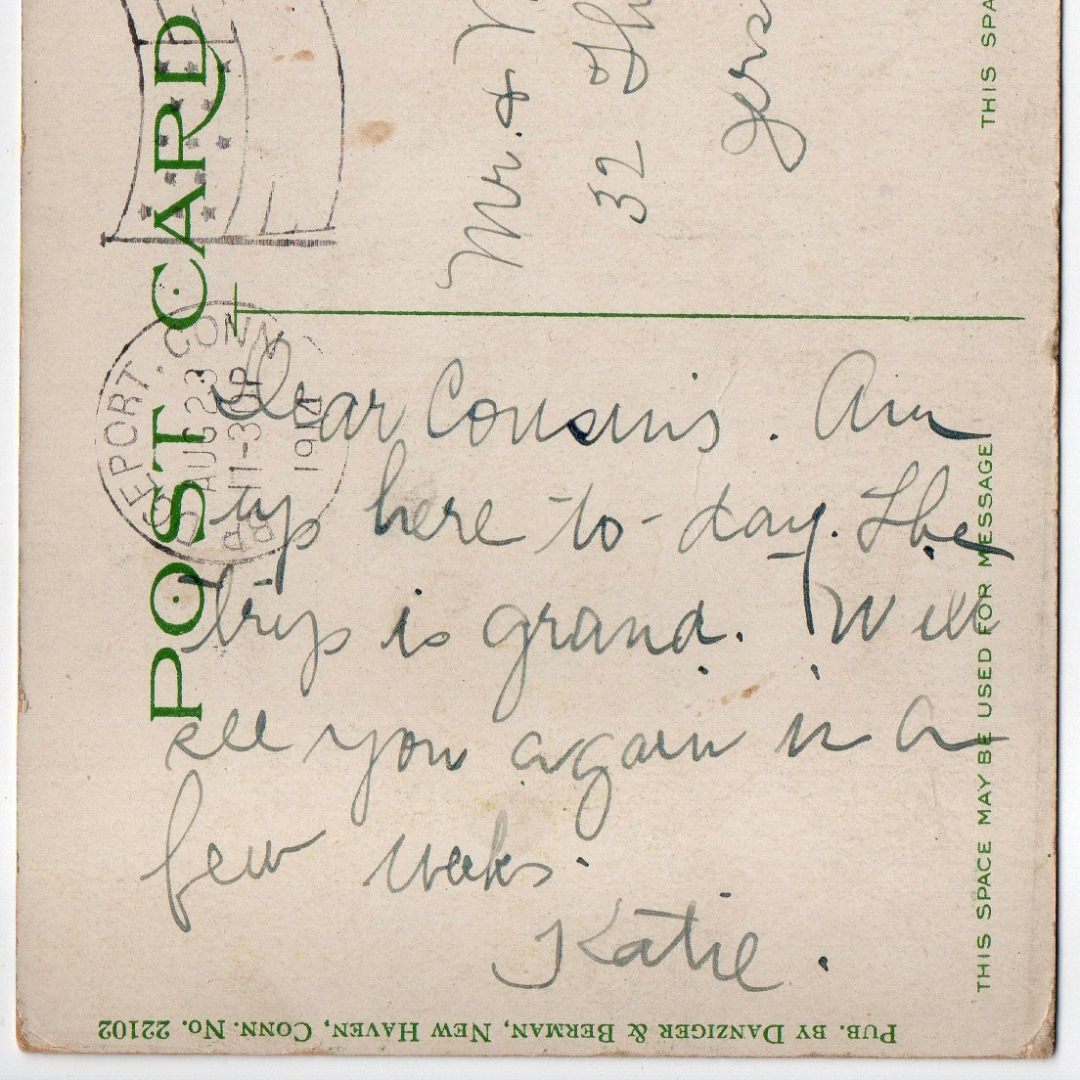 POST CARD
CONN
AUG 23
11-30P
1914
Mr. &
32
THIS SPA
Dear Cousins. Am
up here to-day. The
trip is grand. Will
see you again in a
few weeks.
Katie.
THIS SPACE MAY BE USED FOR MESSAGE
PUB. BY DANZIGER & BERMAN, NEW HAVEN, CONN. No. 22102